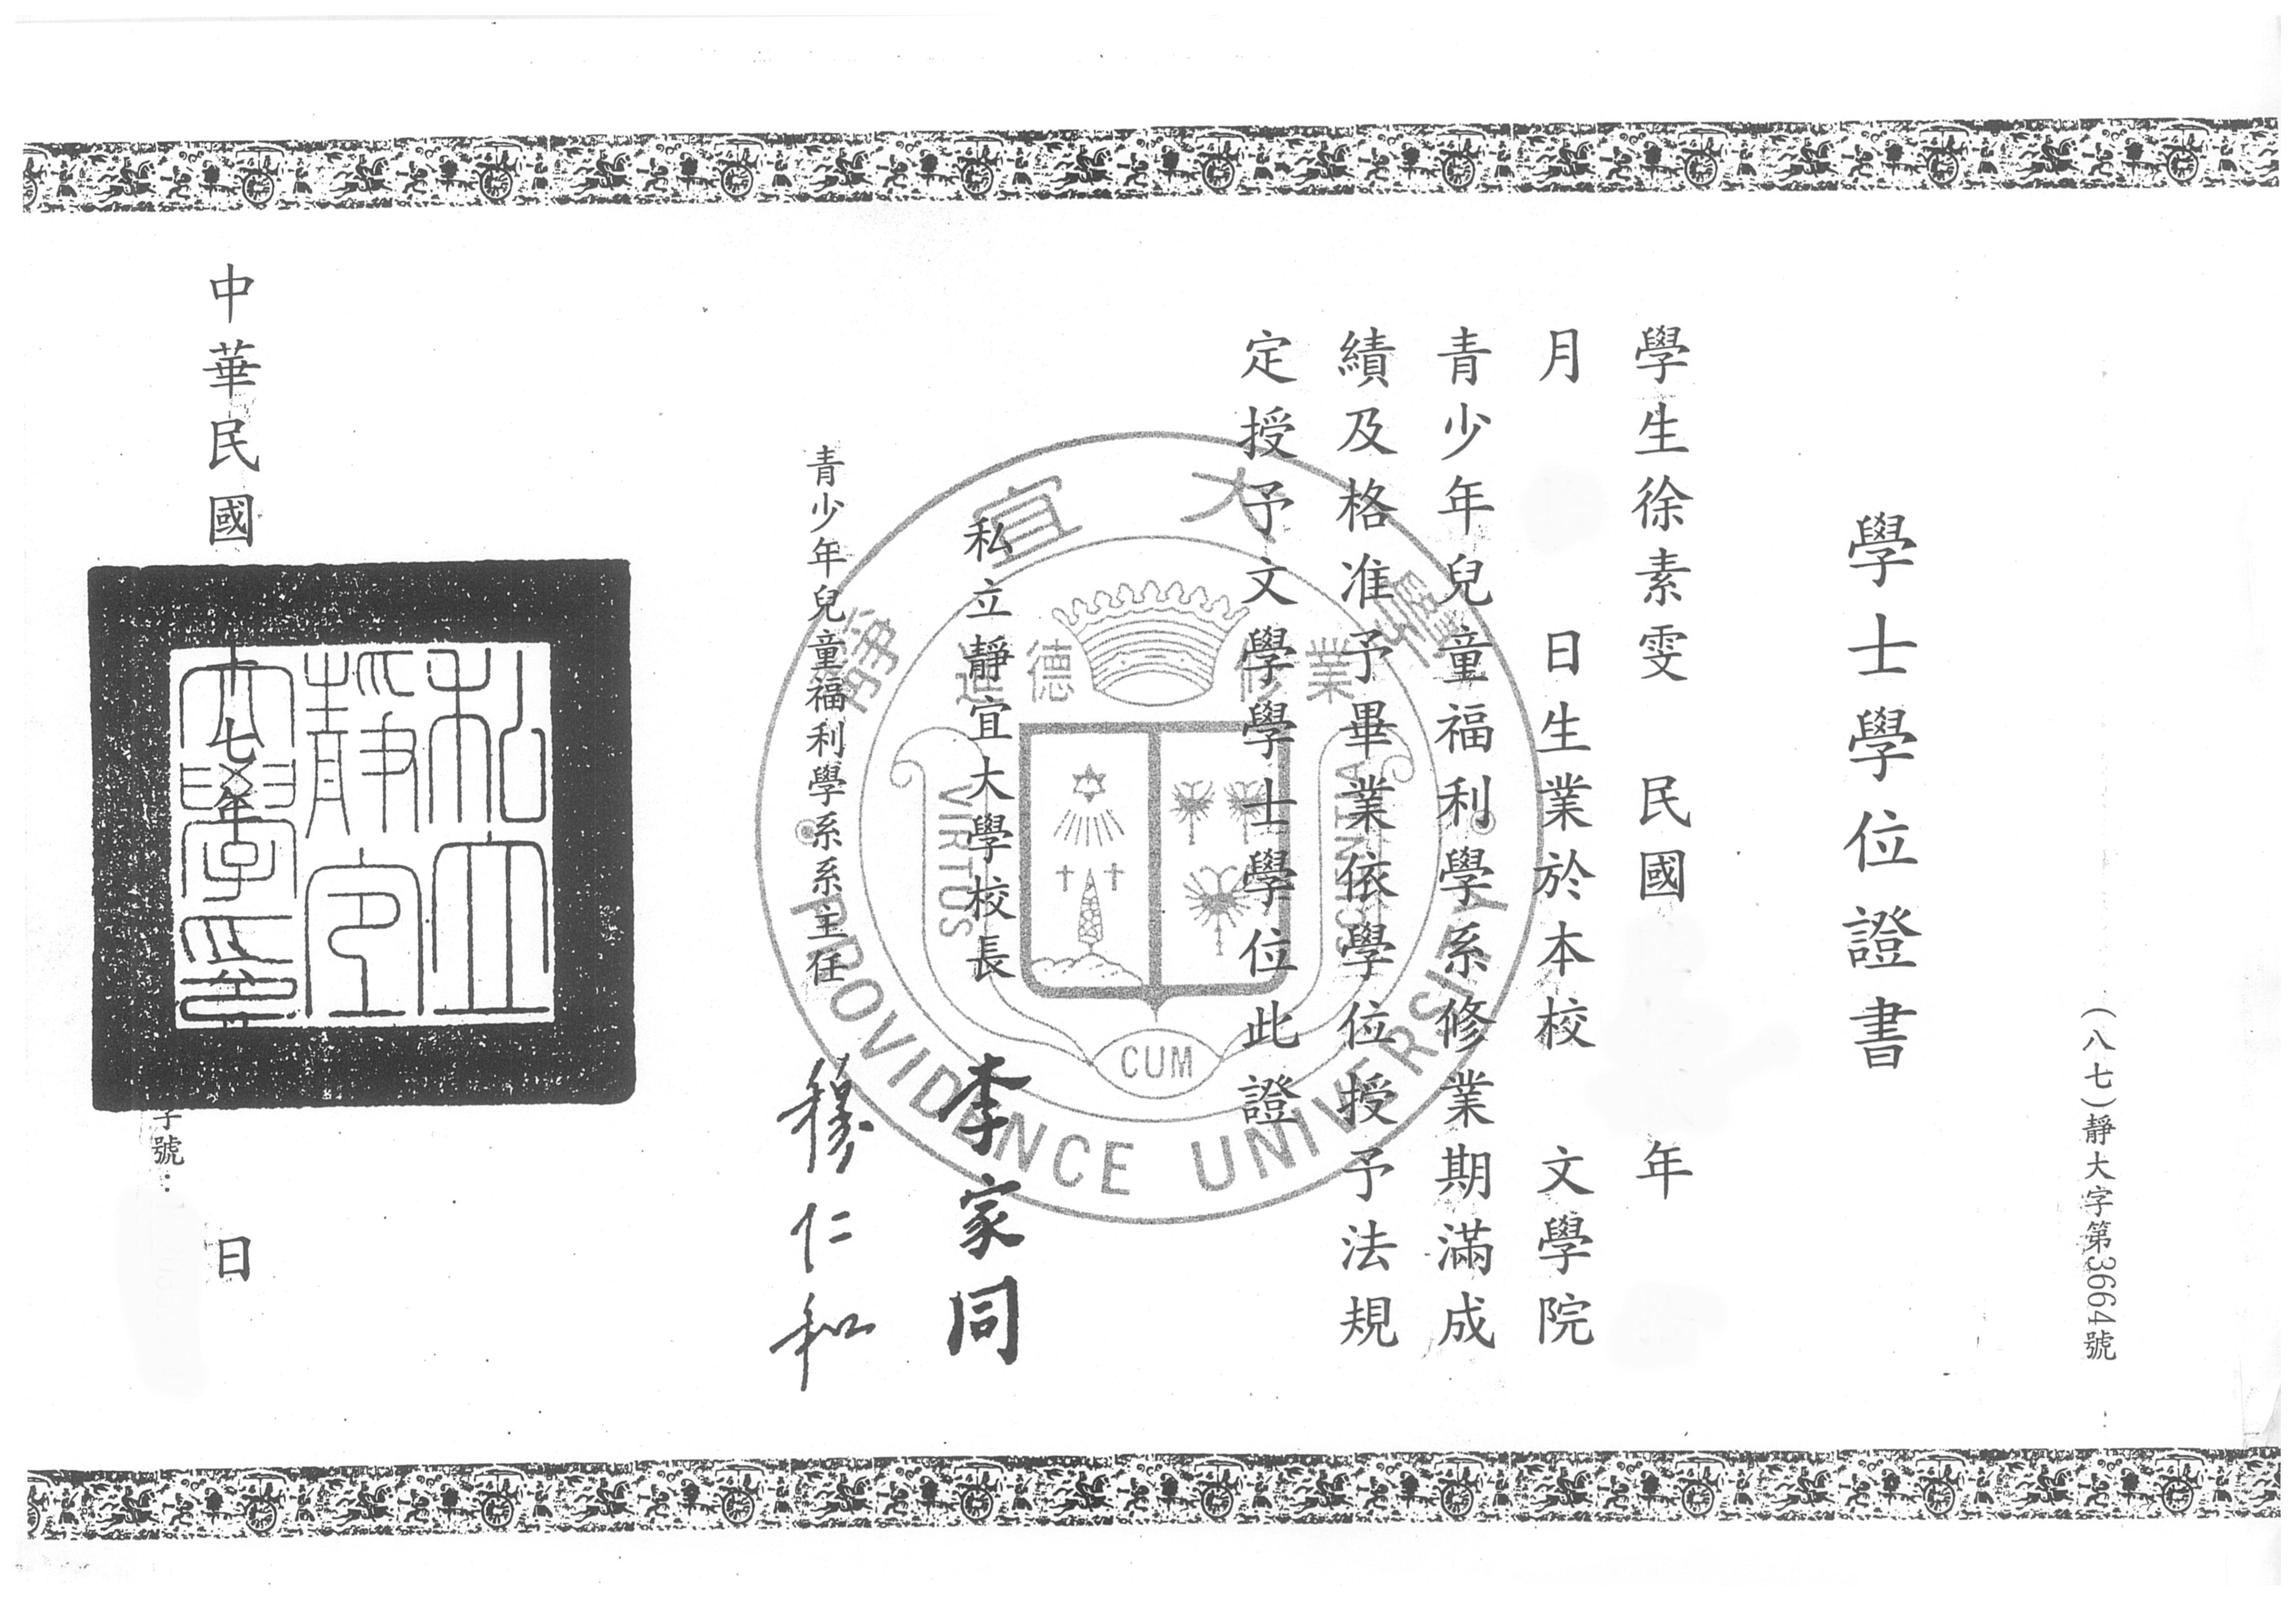 (八七)靜大字第3664號
學士學位證書
學生徐素雯 民國 年
月 日生業於本校 文學院
青少年兒童福利學系修業期滿成
績及格准予畢業依學位授予法規
定授予文學學士學位此證
私立靜宜大學校長 李家同
青少年兒童福利學系系主任 穆仁和
中華民國 七年 日
字號:
私立靜宜大學印
靜宜大學
進德修業
VIRTUS CUM SCIENTIA
PROVIDENCE UNIVERSITY